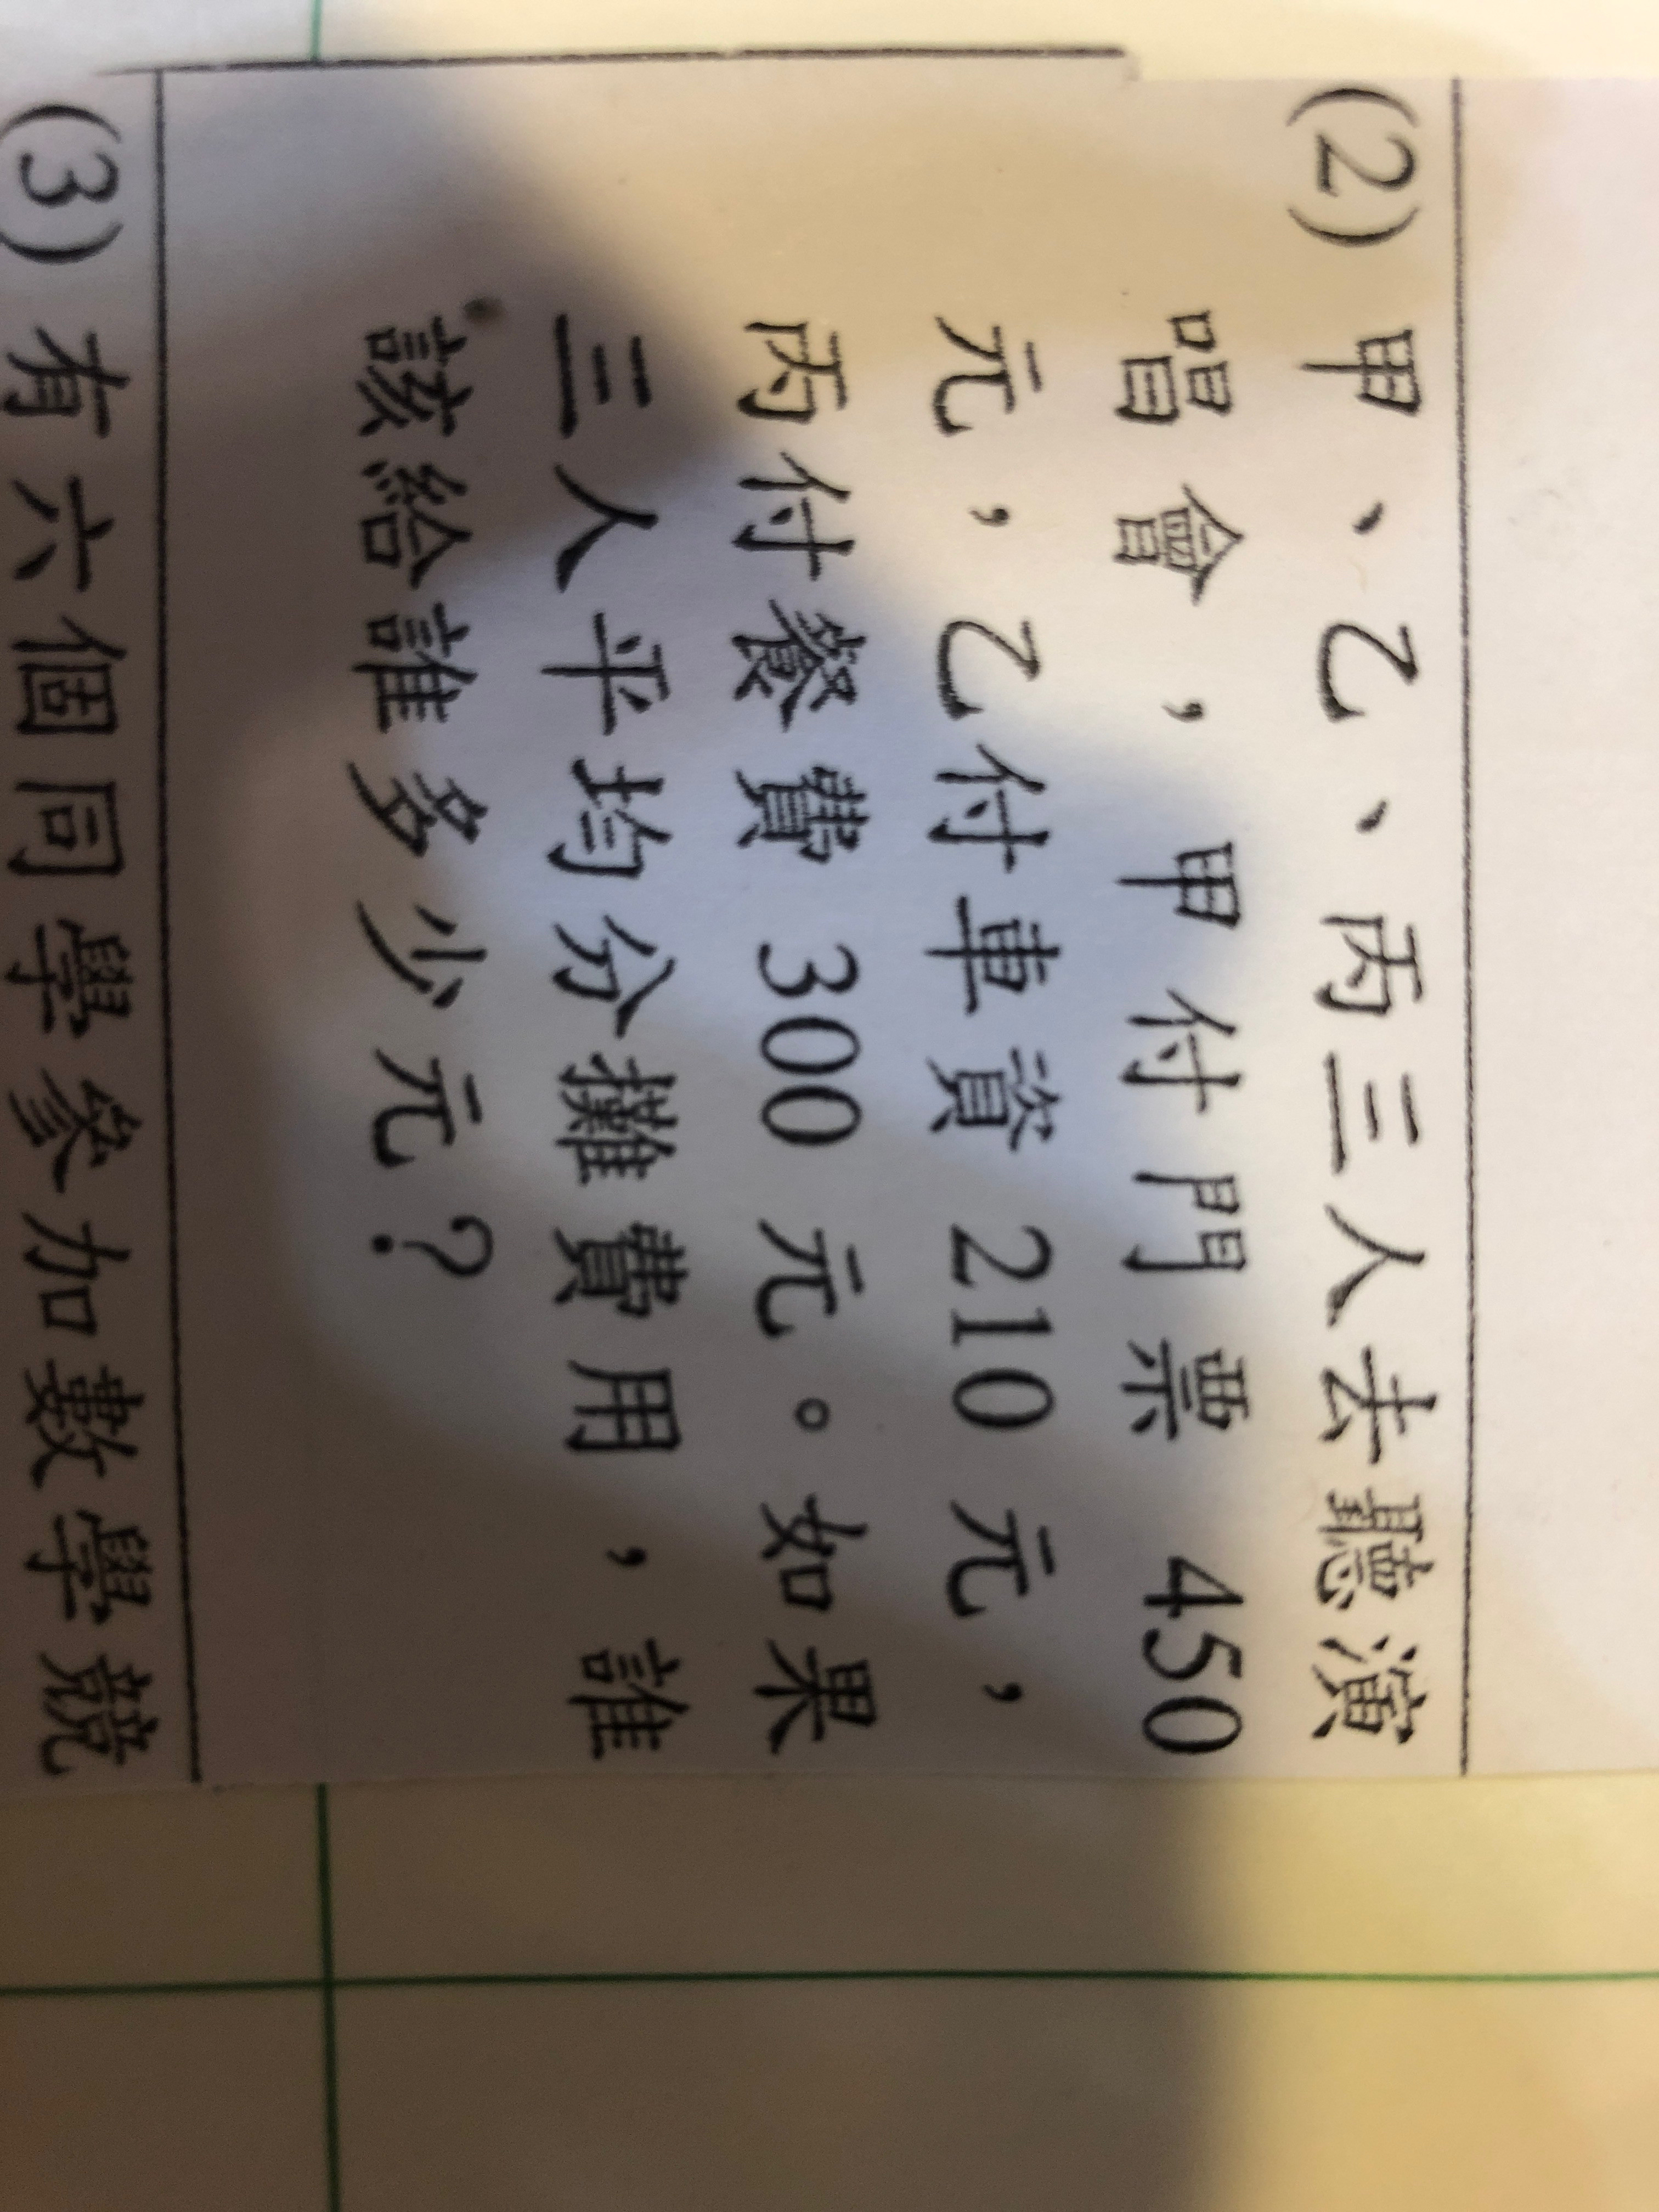 (2) 甲、乙、丙三人去聽演
唱會,甲付門票 450
元,乙付車資 210 元,
丙付餐費 300 元。如果
三人平均分攤費用,誰
該給誰多少元?
(3) 有六個同學參加數學競